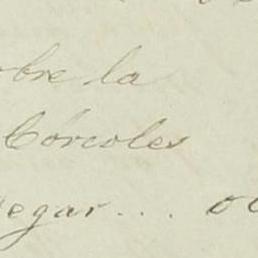 obre la
Córcoles
egar....